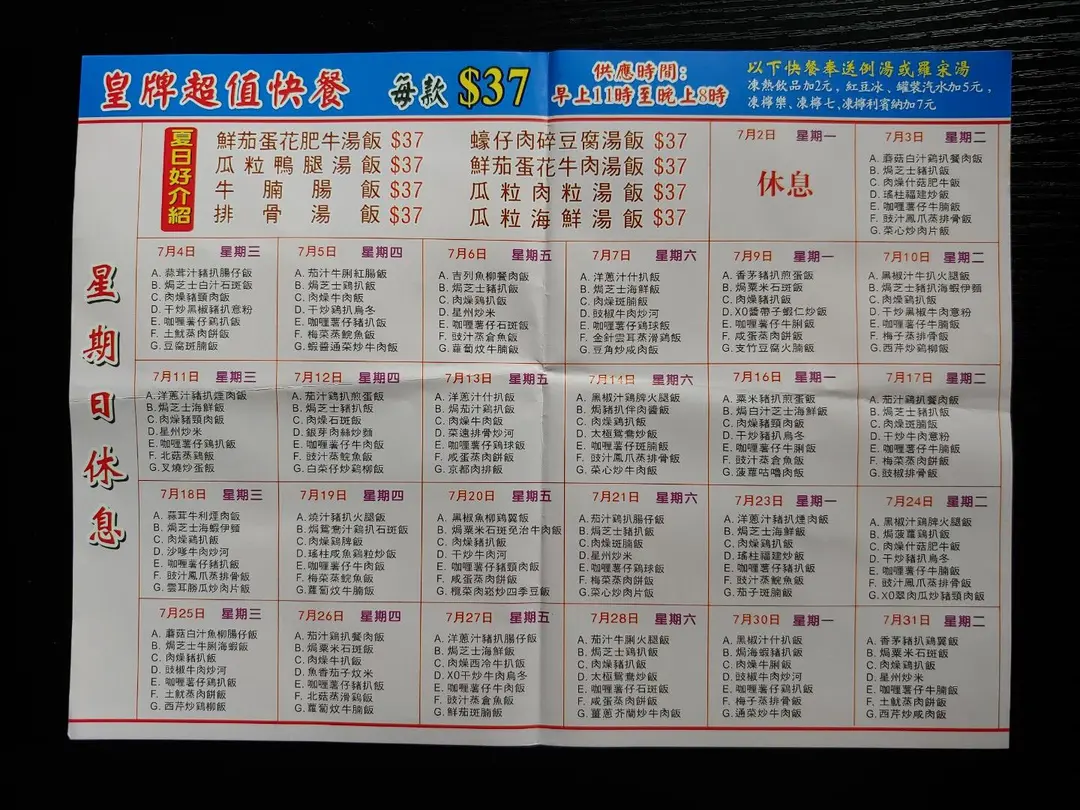 皇牌超值快餐
每款 $37
供應時間:
早上11時至晚上8時
以下快餐奉送例湯或羅宋湯
凍熱飲品加2元，紅豆冰、罐裝汽水加5元，
凍檸樂、凍檸七、凍檸利賓納加7元
夏日好介紹
鮮茄蛋花肥牛湯飯 $37
瓜粒鴨腿湯飯 $37
牛腩腸飯 $37
排骨湯飯 $37
蠔仔肉碎豆腐湯飯 $37
鮮茄蛋花牛肉湯飯 $37
瓜粒肉粒湯飯 $37
瓜粒海鮮湯飯 $37
星期日休息
7月2日 星期一
休息
7月3日 星期二
A. 蘑菇白汁鷄扒餐肉飯
B. 焗芝士豬扒飯
C. 肉燥什菇肥牛飯
D. 瑤柱福建炒飯
E. 咖喱薯仔牛腩飯
F. 豉汁鳳爪蒸排骨飯
G. 菜心炒肉片飯
7月4日 星期三
A. 蒜茸汁豬扒腸仔飯
B. 焗芝士白汁石斑飯
C. 肉燥豬頸肉飯
D. 干炒黑椒豬扒意粉
E. 咖喱薯仔鷄扒飯
F. 土魷蒸肉餅飯
G. 豆腐斑腩飯
7月5日 星期四
A. 茄汁牛脷紅腸飯
B. 焗芝士鷄扒飯
C. 肉燥牛肉飯
D. 干炒鷄扒烏冬
E. 咖喱薯仔豬扒飯
F. 梅菜蒸鯇魚飯
G. 蝦醬通菜炒牛肉飯
7月6日 星期五
A. 吉列魚柳餐肉飯
B. 焗芝士豬扒飯
C. 肉燥鷄扒飯
D. 星州炒米
E. 咖喱薯仔石斑飯
F. 豉汁蒸倉魚飯
G. 蘿蔔炆牛腩飯
7月7日 星期六
A. 洋蔥汁什扒飯
B. 焗芝士海鮮飯
C. 肉燥斑腩飯
D. 豉椒牛肉炒河
E. 咖喱薯仔鷄球飯
F. 金針雲耳蒸滑鷄飯
G. 豆角炒咸肉飯
7月9日 星期一
A. 香茅豬扒煎蛋飯
B. 焗粟米石斑飯
C. 肉燥豬扒飯
D. XO醬帶子蝦仁炒飯
E. 咖喱薯仔牛脷飯
F. 咸蛋蒸肉餅飯
G. 支竹豆腐火腩飯
7月10日 星期二
A. 黑椒汁牛扒火腿飯
B. 焗芝士豬扒海蝦伊麵
C. 肉燥鷄扒飯
D. 干炒黑椒牛肉意粉
E. 咖喱薯仔牛腩飯
F. 梅子蒸排骨飯
G. 西芹炒鷄柳飯
7月11日 星期三
A. 洋蔥汁豬扒煙肉飯
B. 焗芝士海鮮飯
C. 肉燥豬頸肉飯
D. 星州炒米
E. 咖喱薯仔鷄扒飯
F. 北菇蒸鷄飯
G. 叉燒炒蛋飯
7月12日 星期四
A. 茄汁鷄扒煎蛋飯
B. 焗芝士豬扒飯
C. 肉燥石斑飯
D. 銀芽肉絲炒麵
E. 咖喱薯仔牛肉飯
F. 豉汁蒸鯇魚飯
G. 白菜仔炒鷄柳飯
7月13日 星期五
A. 洋蔥汁什扒飯
B. 焗茄汁鷄扒飯
C. 肉燥牛肉飯
D. 菜遠排骨炒河
E. 咖喱薯仔鷄球飯
F. 咸蛋蒸肉餅飯
G. 京都肉排飯
7月14日 星期六
A. 黑椒汁鷄髀火腿飯
B. 焗豬扒伴肉醬飯
C. 肉燥鷄扒飯
D. 太極鴛鴦炒飯
E. 咖喱薯仔斑腩飯
F. 豉汁鳳爪蒸排骨飯
G. 菜心炒牛肉飯
7月16日 星期一
A. 粟米豬扒煎蛋飯
B. 焗白汁芝士海鮮飯
C. 肉燥豬頸肉飯
D. 干炒豬扒烏冬
E. 咖喱薯仔牛脷飯
F. 豉汁蒸倉魚飯
G. 菠蘿咕嚕肉飯
7月17日 星期二
A. 茄汁鷄扒餐肉飯
B. 焗芝士豬扒飯
C. 肉燥斑腩飯
D. 干炒牛肉意粉
E. 咖喱薯仔牛腩飯
F. 梅菜蒸肉餅飯
G. 豉椒排骨飯
7月18日 星期三
A. 蒜茸牛利煙肉飯
B. 焗芝士海蝦伊麵
C. 肉燥鷄扒飯
D. 沙嗲牛肉炒河
E. 咖喱薯仔豬扒飯
F. 豉汁鳳爪蒸排骨飯
G. 雲耳勝瓜炒肉片飯
7月19日 星期四
A. 燒汁豬扒火腿飯
B. 焗鴛鴦汁鷄扒石斑飯
C. 肉燥鷄髀飯
D. 瑤柱咸魚鷄粒炒飯
E. 咖喱薯仔牛肉飯
F. 梅菜蒸鯇魚飯
G. 蘿蔔炆牛腩飯
7月20日 星期五
A. 黑椒魚柳鷄翼飯
B. 焗粟米石斑免治牛肉飯
C. 肉燥豬扒飯
D. 干炒牛肉河
E. 咖喱薯仔豬頸肉飯
F. 咸蛋蒸肉餅飯
G. 欖菜肉崧炒四季豆飯
7月21日 星期六
A. 茄汁鷄扒腸仔飯
B. 焗芝士豬扒飯
C. 肉燥斑腩飯
D. 星州炒米
E. 咖喱薯仔鷄球飯
F. 梅菜蒸肉餅飯
G. 菜心炒肉片飯
7月23日 星期一
A. 洋蔥汁豬扒煙肉飯
B. 焗芝士海鮮飯
C. 肉燥鷄扒飯
D. 瑤柱福建炒飯
E. 咖喱薯仔豬扒飯
F. 豉汁蒸鯇魚飯
G. 茄子斑腩飯
7月24日 星期二
A. 黑椒汁鷄髀火腿飯
B. 焗菠蘿鷄扒飯
C. 肉燥什菇肥牛飯
D. 干炒豬扒烏冬
E. 咖喱薯仔牛腩飯
F. 豉汁鳳爪蒸排骨飯
G. XO翠肉瓜炒豬頸肉飯
7月25日 星期三
A. 蘑菇白汁魚柳腸仔飯
B. 焗芝士牛脷海蝦飯
C. 肉燥豬扒飯
D. 豉椒牛肉炒河
E. 咖喱薯仔鷄扒飯
F. 土魷蒸肉餅飯
G. 西芹炒鷄柳飯
7月26日 星期四
A. 茄汁鷄扒餐肉飯
B. 焗粟米石斑飯
C. 肉燥牛扒飯
D. 魚香茄子炆米
E. 咖喱薯仔豬扒飯
F. 北菇蒸滑鷄飯
G. 蘿蔔炆牛腩飯
7月27日 星期五
A. 洋蔥汁豬扒腸仔飯
B. 焗芝士海鮮飯
C. 肉燥西冷牛扒飯
D. XO干炒牛肉烏冬
E. 咖喱薯仔牛肉飯
F. 豉汁蒸倉魚飯
G. 鮮茄斑腩飯
7月28日 星期六
A. 茄汁牛脷火腿飯
B. 焗芝士鷄扒飯
C. 肉燥豬扒飯
D. 太極鴛鴦炒飯
E. 咖喱薯仔石斑飯
F. 咸蛋蒸肉餅飯
G. 薑蔥芥蘭炒牛肉飯
7月30日 星期一
A. 黑椒汁什扒飯
B. 焗海蝦豬扒飯
C. 肉燥牛脷飯
D. 豉椒牛肉炒河
E. 咖喱薯仔鷄扒飯
F. 梅子蒸排骨飯
G. 通菜炒牛肉飯
7月31日 星期二
A. 香茅豬扒鷄翼飯
B. 焗粟米石斑飯
C. 肉燥鷄扒飯
D. 星州炒米
E. 咖喱薯仔牛腩飯
F. 土魷蒸肉餅飯
G. 西芹炒咸肉飯